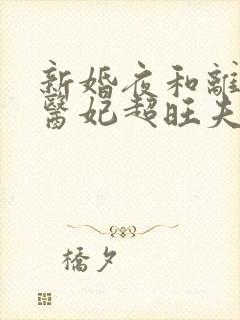 新婚夜和離
醫妃超旺夫
橋夕